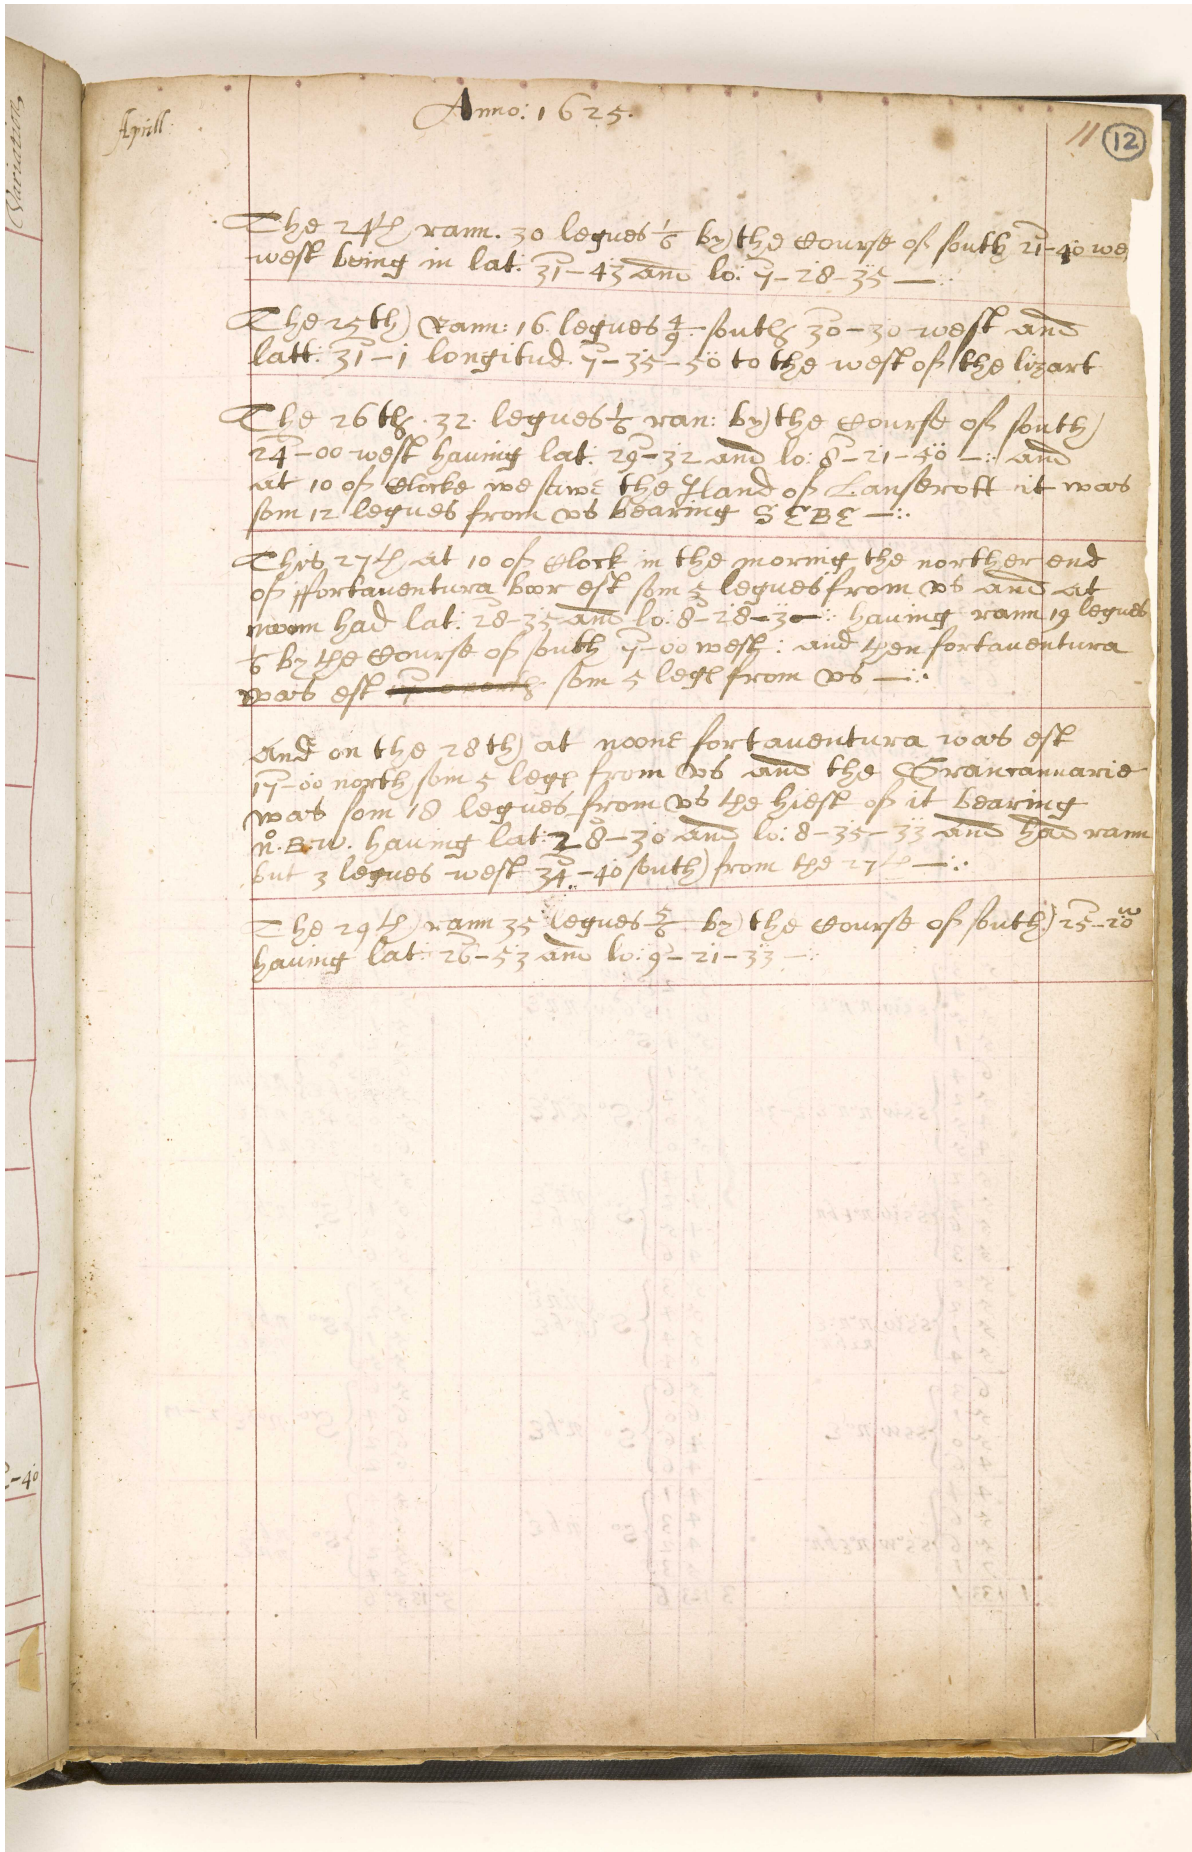 Variation
Aprill:
Anno: 1625.
11 12
The 24th rann. 30 legues 1/6 by the Course of south 21-40 we
west being in lat: 31-43 and lo: 7-28-35 —:
The 25th Rann: 16 legues 4/9 south 30-30 west and
latt: 31-1 longitud. 7-35-50 to the west of the lizart
The 26th. 32. legues 1/6 ran: by the Course of south
24-00 west having lat: 29-32 and lo: 8-21-50 —: and
at 10 of Clocke we sawe the Iland of Lanserott it was
som 12 legues from vs bearing SEBE —:.
This 27th at 10 of Clock in the morning the norther end
of ffortauentura bor est som 5 legues from vs and at
noom had lat: 28-35 and lo: 8-28-30 —: having rann 19 legues
1/6 by the Course of south 7-00 west: and then fortauentura
was est som 5 legl from vs —:.
And on the 28th at noone fortauentura was est
17-00 north som 5 legl from vs and the Grancannarie
was som 18 legues from vs the hiest of it bearing
n. B. W. having lat: 28-30 and lo: 8-35-33 and had rann
but 3 legues west 34-40 south from the 27th —:.
The 29th rann 35 legues 5/6 by the Course of south 25-20 w
having lat: 26-53 and lo: 9-21-33 —:
-40